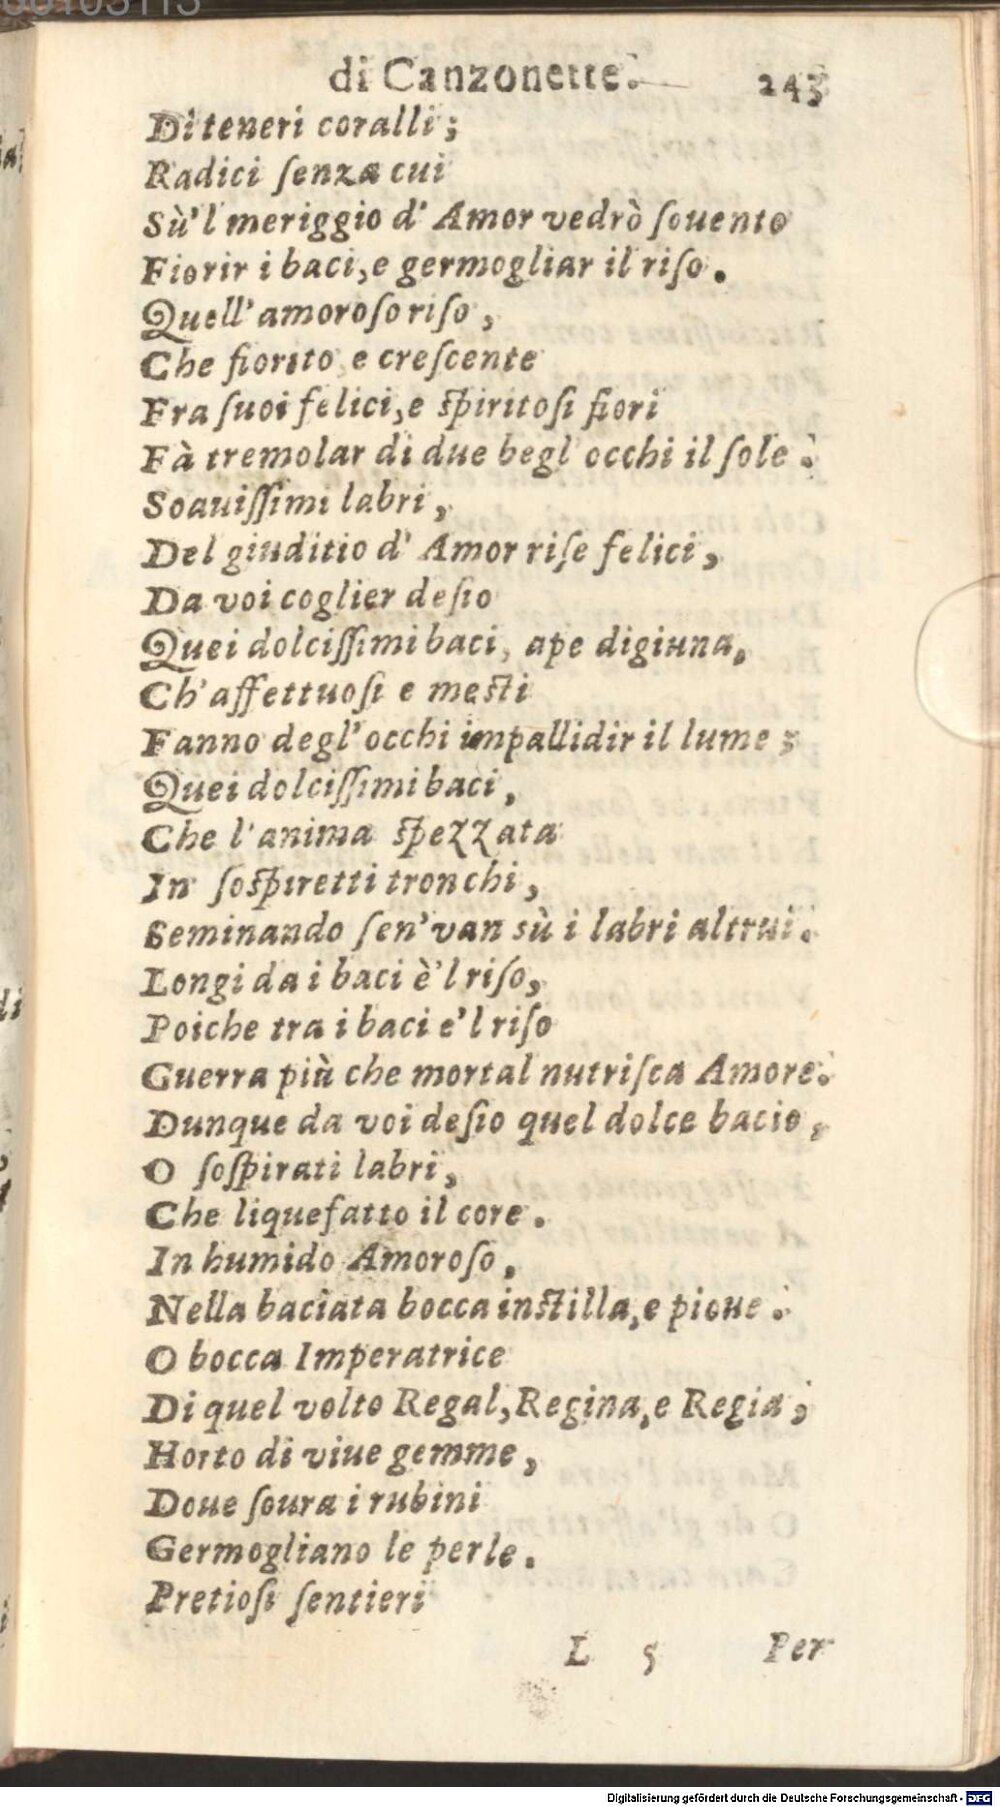 di Canzonette. 245
Di teneri coralli;
Radici ſenza cui
Sù'l meriggio d' Amor vedrò ſouente
Fiorir i baci, e germogliar il riſo.
Quell' amoroſo riſo,
Che fiorito e creſcente
Fra ſuoi felici, e ſpiritoſi fiori
Fà tremolar di due begl' occhi il ſole.
Soauiſſimi labri,
Del giuditio d' Amor riſe felici,
Da voi coglier deſio
Quei dolciſſimi baci, ape digiuna,
Ch' affettuoſi e meſti
Fanno degl' occhi impallidir il lume;
Quei dolciſſimi baci,
Che l'anima ſpezzata
In ſoſpiretti tronchi,
Seminando ſen' van sù i labri altrui.
Longi da i baci è'l riſo,
Poiche tra i baci e'l riſo
Guerra più che mortal nutriſca Amore.
Dunque da voi deſio quel dolce bacio,
O ſoſpirati labri,
Che liquefatto il core.
In humido Amoroſo,
Nella baciata bocca inſtilla, e pioue.
O bocca Imperatrice
Di quel volto Regal, Regina, e Regia;
Horto di viue gemme,
Doue ſoura i rubini
Germogliano le perle.
Pretioſi ſentieri
L 5 Per
Digitalisierung gefördert durch die Deutsche Forschungsgemeinschaft - DFG